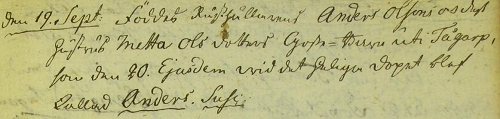 den 19. Sept: Föddes Ryttgullarens Anders Olsons och dess
hustrus Metta Ols dotters Gosse-Barn uti Tågarp,
som den 20. Ejusdem wid det heliga dopet blef
kallad Anders. Susc: